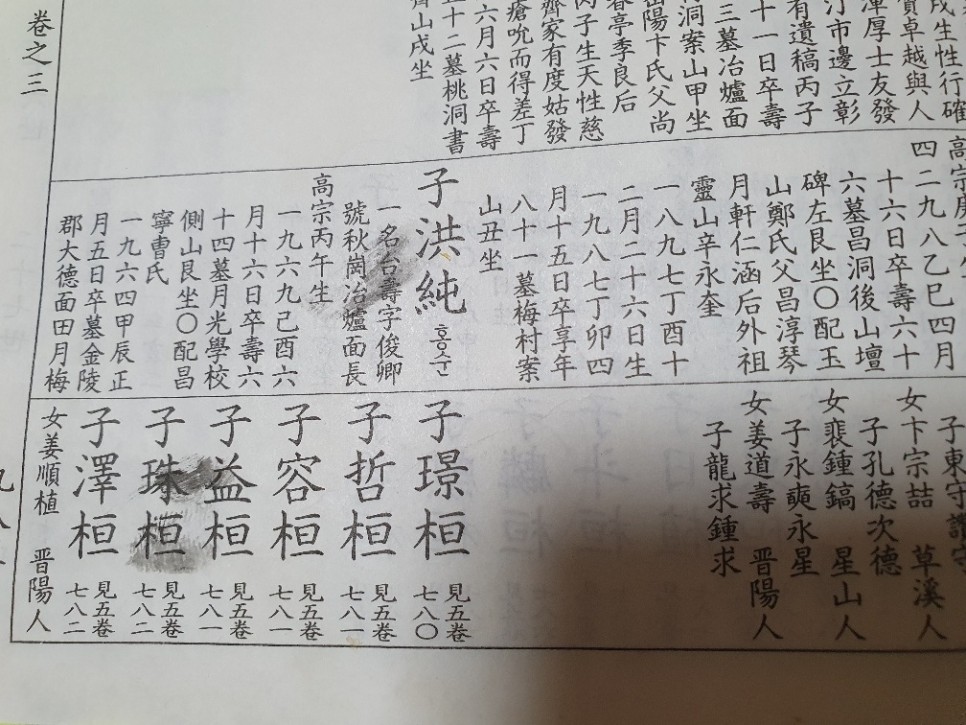 卷之三
戌生性行確
質卓越與人
渾厚士友發
汀市邊立彰
有遺稿丙子
十一日卒壽
三墓冶爐面
洞案山甲坐
陽卞氏父尚
春亭季良后
丙子生天性慈
齊家有度姑發
瘡吮而得差丁
六月六日卒壽
十二墓桃洞書
山戌坐
高宗庚子生
四二九八乙巳四月
十六日卒壽六十
六墓昌洞後山壇
碑左艮坐〇配玉
山鄭氏父昌淳琴
月軒仁涵后外祖
靈山辛永奎
一八九七丁酉十
二月二十六日生
一九八七丁卯四
月十五日卒享年
八十一墓梅村案
山丑坐
子洪純 홍순
一名台壽字俊卿
號秋崗冶爐面長
高宗丙午生
一九六九己酉六
月十六日卒壽六
十四墓月光學校
側山艮坐〇配昌
寧曹氏
一九六四甲辰正
月五日卒墓金陵
郡大德面田月梅
子東守讚守
女卞宗喆 草溪人
子孔德次德
女裴鍾鎬 星山人
子永奭永星
女姜道壽 晋陽人
子龍求鍾求
子璟桓 見五卷七八〇
子哲桓 見五卷七八一
子容桓 見五卷七八一
子益桓 見五卷七八一
子珠桓 見五卷七八二
子澤桓 見五卷七八二
女姜順植 晋陽人